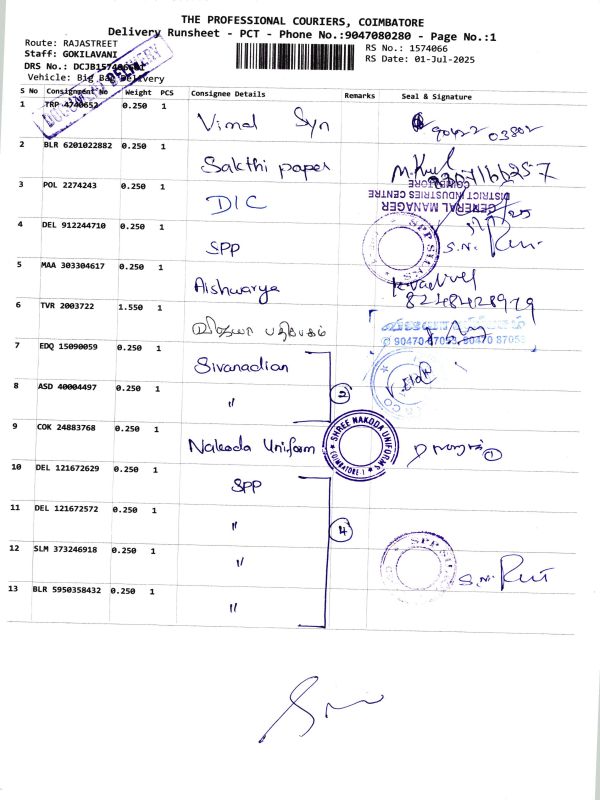 THE PROFESSIONAL COURIERS, COIMBATORE
Delivery Runsheet - PCT - Phone No.:9047080280 - Page No.:1
Route: RAJASTREET
RS No.: 1574066
Staff: GOKILAVANI
RS Date: 01-Jul-2025
DRS No.:
Vehicle: Big Bag Delivery
S No Consignment No Weight PCS Consignee Details Remarks Seal & Signature
1 TRP 4740652 0.250 1 Vimal Syn 90422 03802
2 BLR 6201022882 0.250 1 Sakthi paper
3 POL 2274243 0.250 1 DIC
GENERAL MANAGER
DISTRICT INDUSTRIES CENTRE
COIMBATORE
4 DEL 912244710 0.250 1 SPP SPP SILKS S.N.
5 MAA 303304617 0.250 1 Aishwarya K.Vadivel
8248428979
6 TVR 2003722 1.550 1 விஜயா பதிப்பகம்
90470 87053, 90470 87058
7 EDQ 15090059 0.250 1 Sivanadian
8 ASD 40004497 0.250 1 " 2
9 COK 24883768 0.250 1 Nakoda Uniform SHREE NAKODA UNIFORMS (COIMBATORE-1) 1
10 DEL 121672629 0.250 1 SPP
11 DEL 121672572 0.250 1 " 4
12 SLM 373246918 0.250 1 " SPP SILKS S.N.
13 BLR 5950358432 0.250 1 "